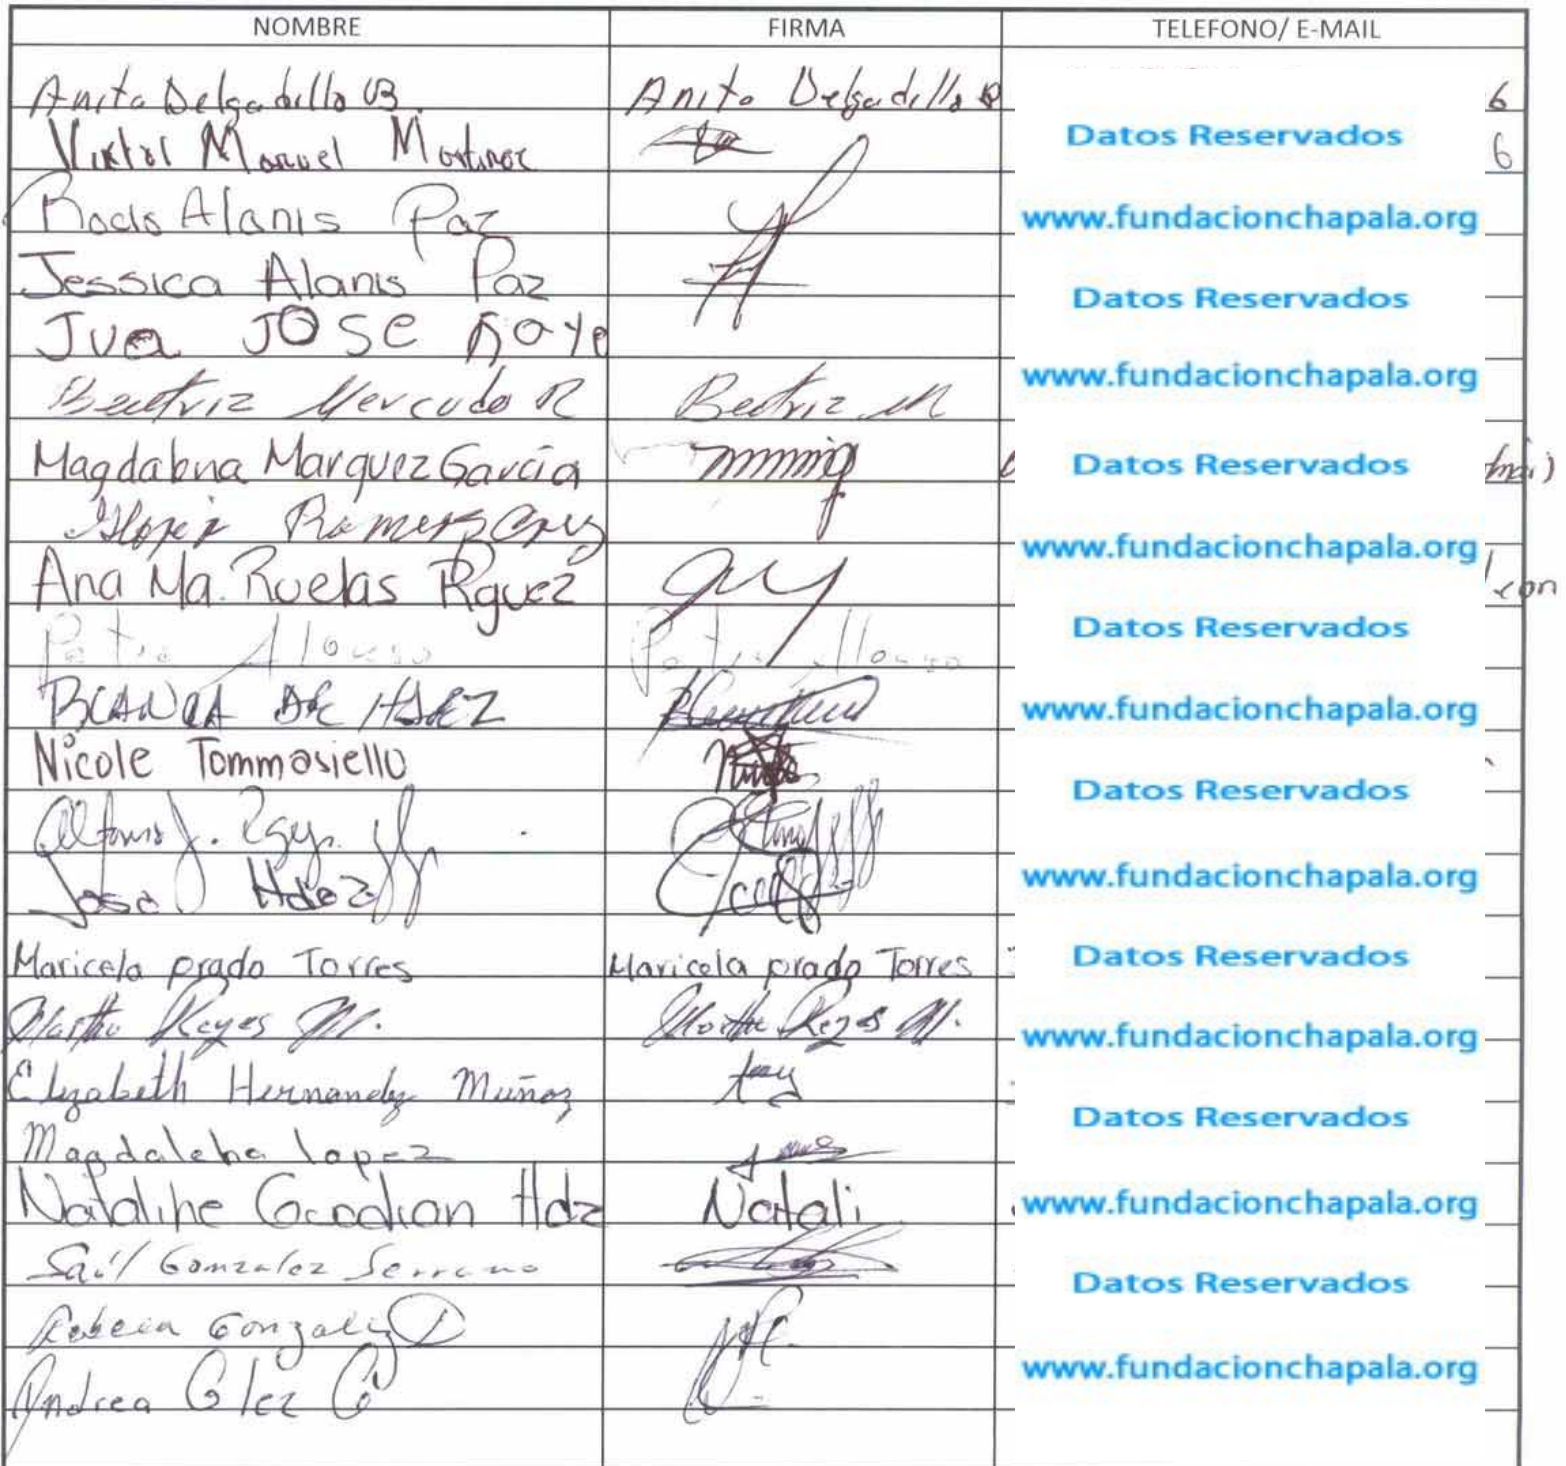 NOMBRE FIRMA TELEFONO/ E-MAIL
Anita Delgadillo Anita Delgadillo 6
Datos Reservados
Manuel Martinez 6
Rocio Alanis Paz www.fundacionchapala.org
Jessica Alanis Paz Datos Reservados
Jua JOSE
Beatriz Mercado R Beatriz M www.fundacionchapala.org
Magdalena Marquez Garcia Datos Reservados
www.fundacionchapala.org
Ana Ma. Ruelas Rguez
Datos Reservados
Alonso
BLANCA HdEZ www.fundacionchapala.org
Nicole Tommasiello
Datos Reservados
Alfonso J.
Jose Hdez www.fundacionchapala.org
Maricela prado Torres Maricela prado Torres Datos Reservados
Martha Reyes M. Martha Reyes M. www.fundacionchapala.org
Elizabeth Hernandez Muñoz
Datos Reservados
Magdalena Lopez
Natalihe Hdz Natali www.fundacionchapala.org
Saúl Gonzalez Serrano
Datos Reservados
Rebeca Gonzalez
www.fundacionchapala.org
Andrea Glez G